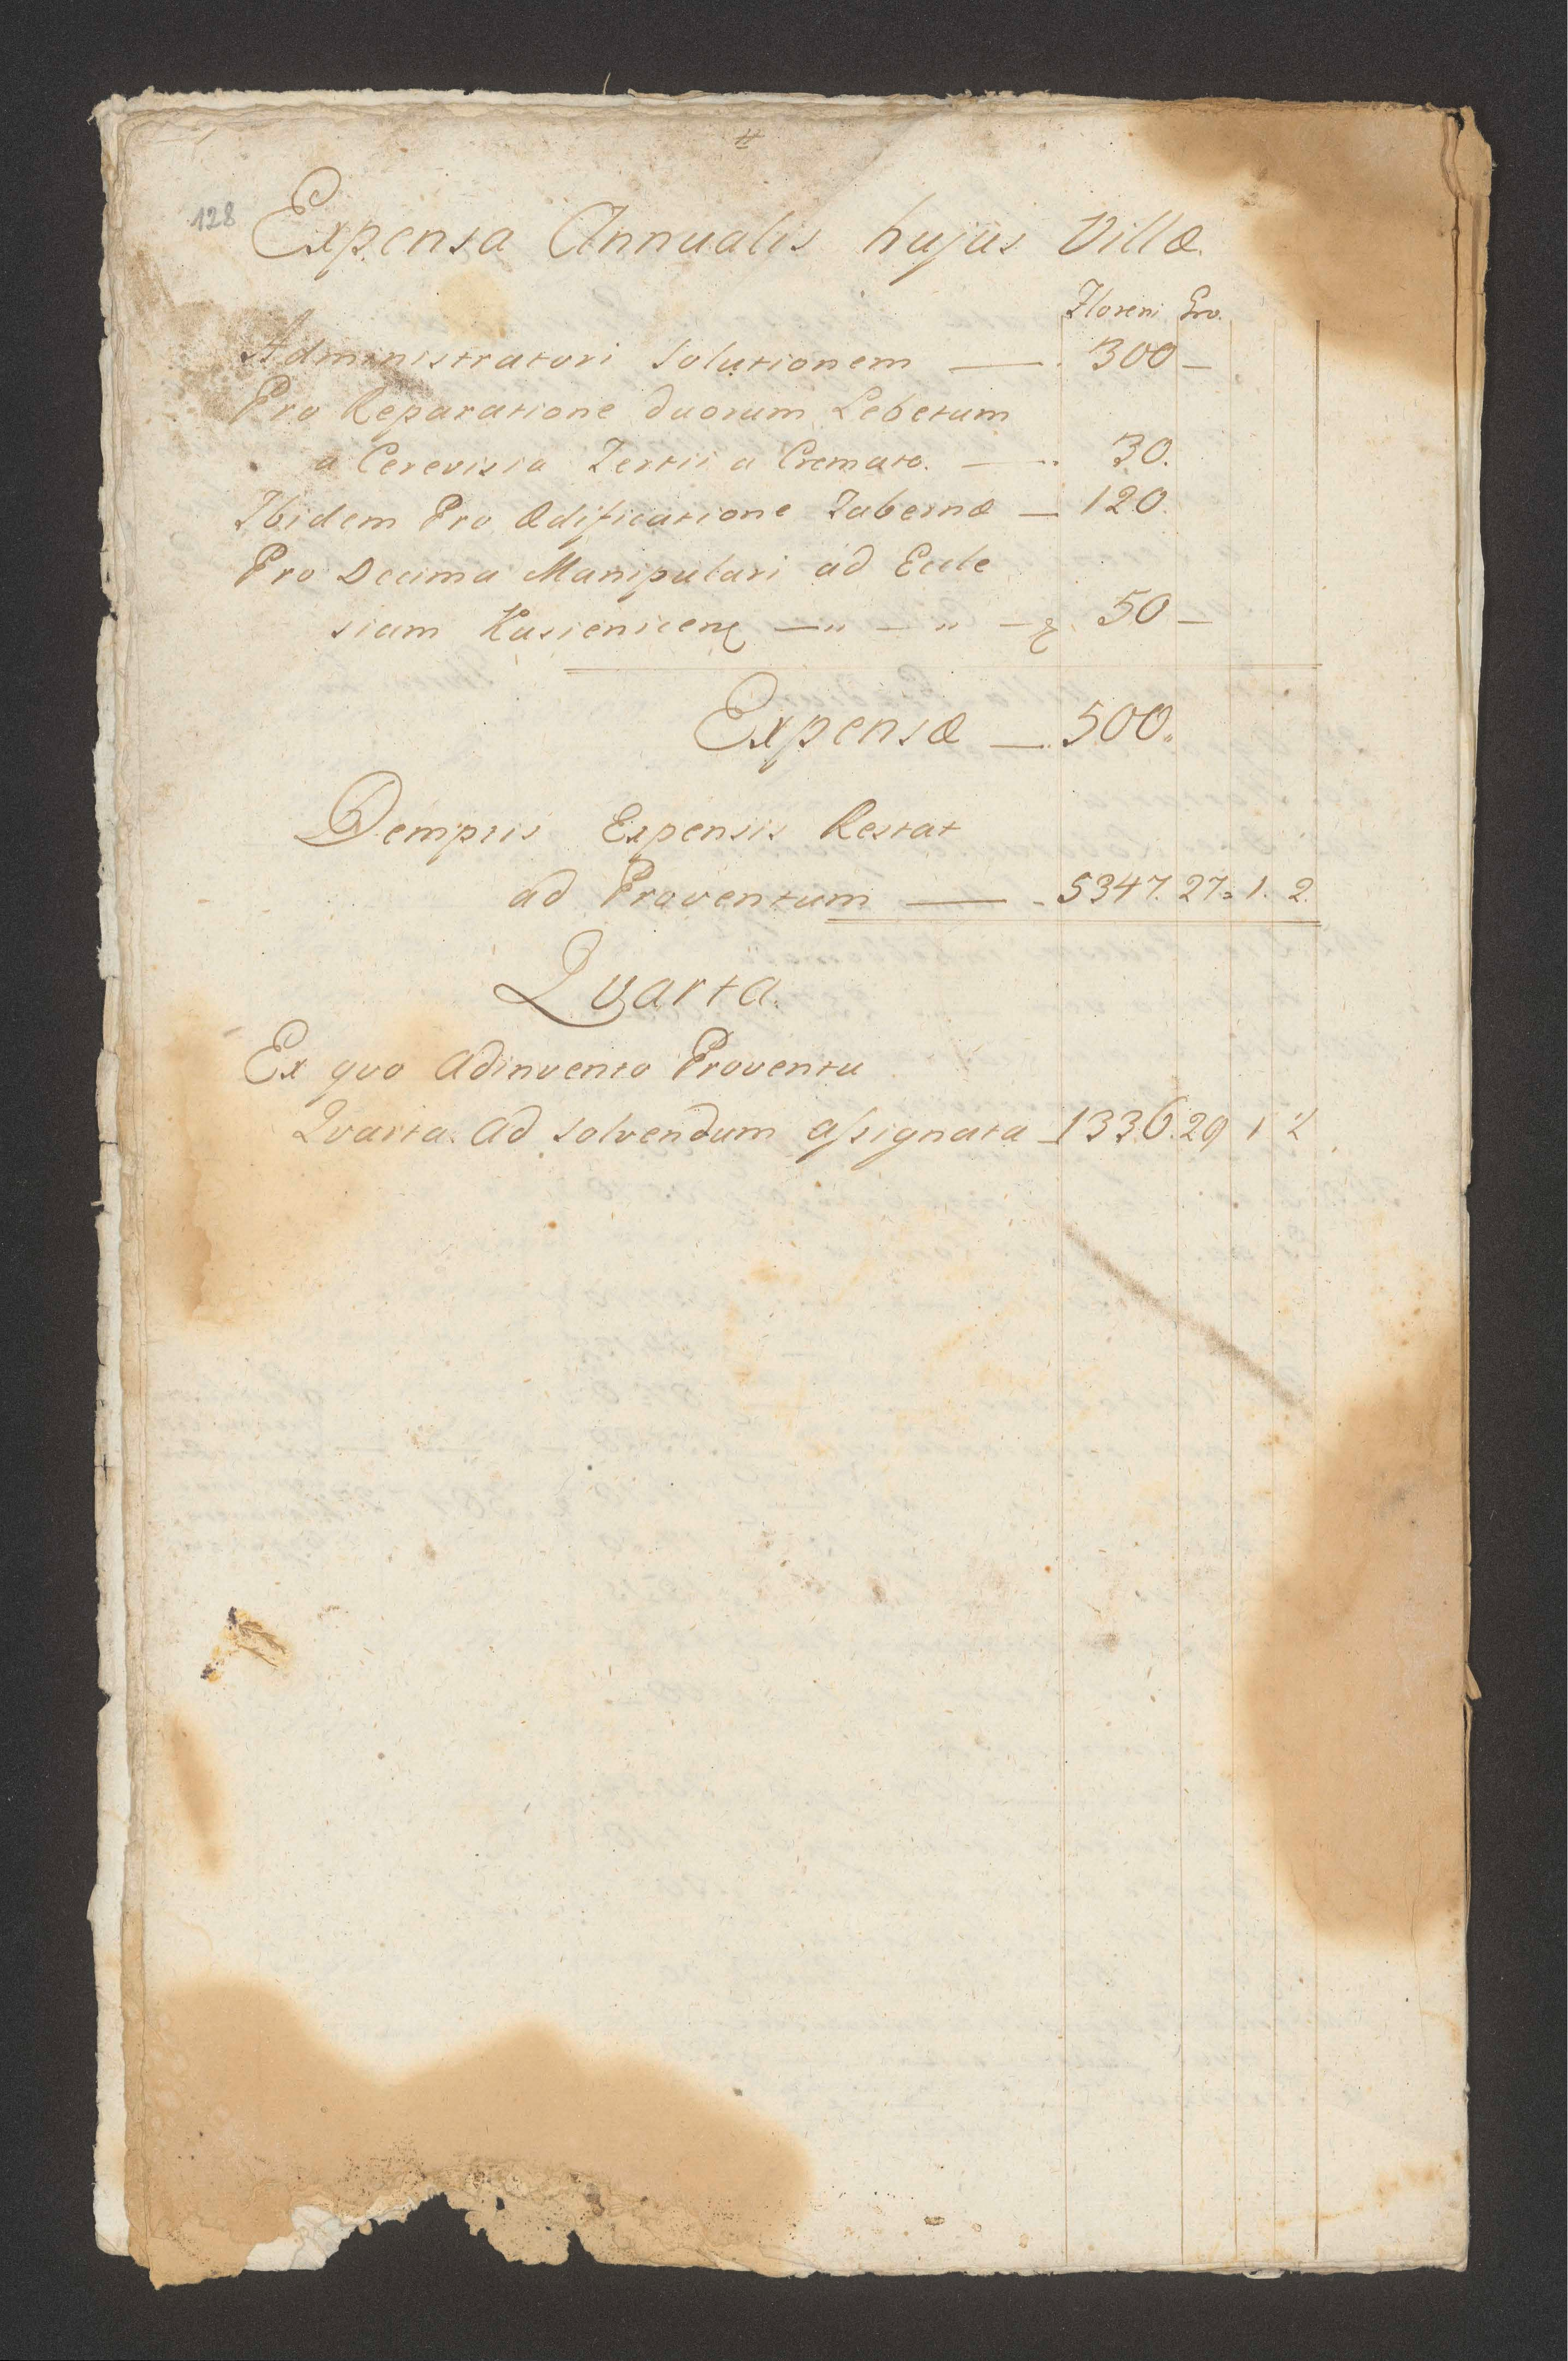 #
128 Expensa Annualis hujus Villæ.
Floreni Gro.
Administratori Solutionem — 300 —
Pro Reparatione duorum Lebetum
a Cerevisia Tertii a Cremato. — 30.
Ibidem Pro Ædificatione Tabernæ — 120.
Pro Decima Manipulari ad Eccle
siam — " — " — 50 —
Expensæ — 500.
Demptis Expensis Restat
ad Proventum — 5347. 27. 1. 2.
Qvarta.
Ex qvo Adinvento Proventu
Qvarta. Ad solvendum assignata 1336. 29 1